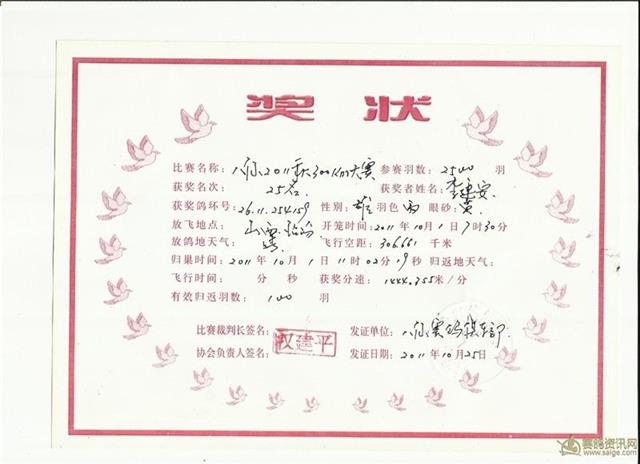 奖 状
比赛名称：2011秋300Km大赛 参赛羽数：2500 羽
获奖名次：25名 获奖者姓名：李建安
获奖鸽环号：26.11.254159 性别：雄 羽色 雨 眼砂：黄
放飞地点：山西 开笼时间：2011 年 10 月 1 日 7 时 30 分
放鸽地天气： 飞行空距：306.661 千米
归巢时间：2011 年 10 月 1 日 11 时 02 分 19 秒 归返地天气：
飞行时间： 分 秒 获奖分速：1444.355 米/分
有效归返羽数：100 羽
比赛裁判长签名： 发证单位：赛鸽俱乐部
权建平
协会负责人签名： 发证日期：2011 年 10 月 25 日
赛鸽资讯网
www.saige.com